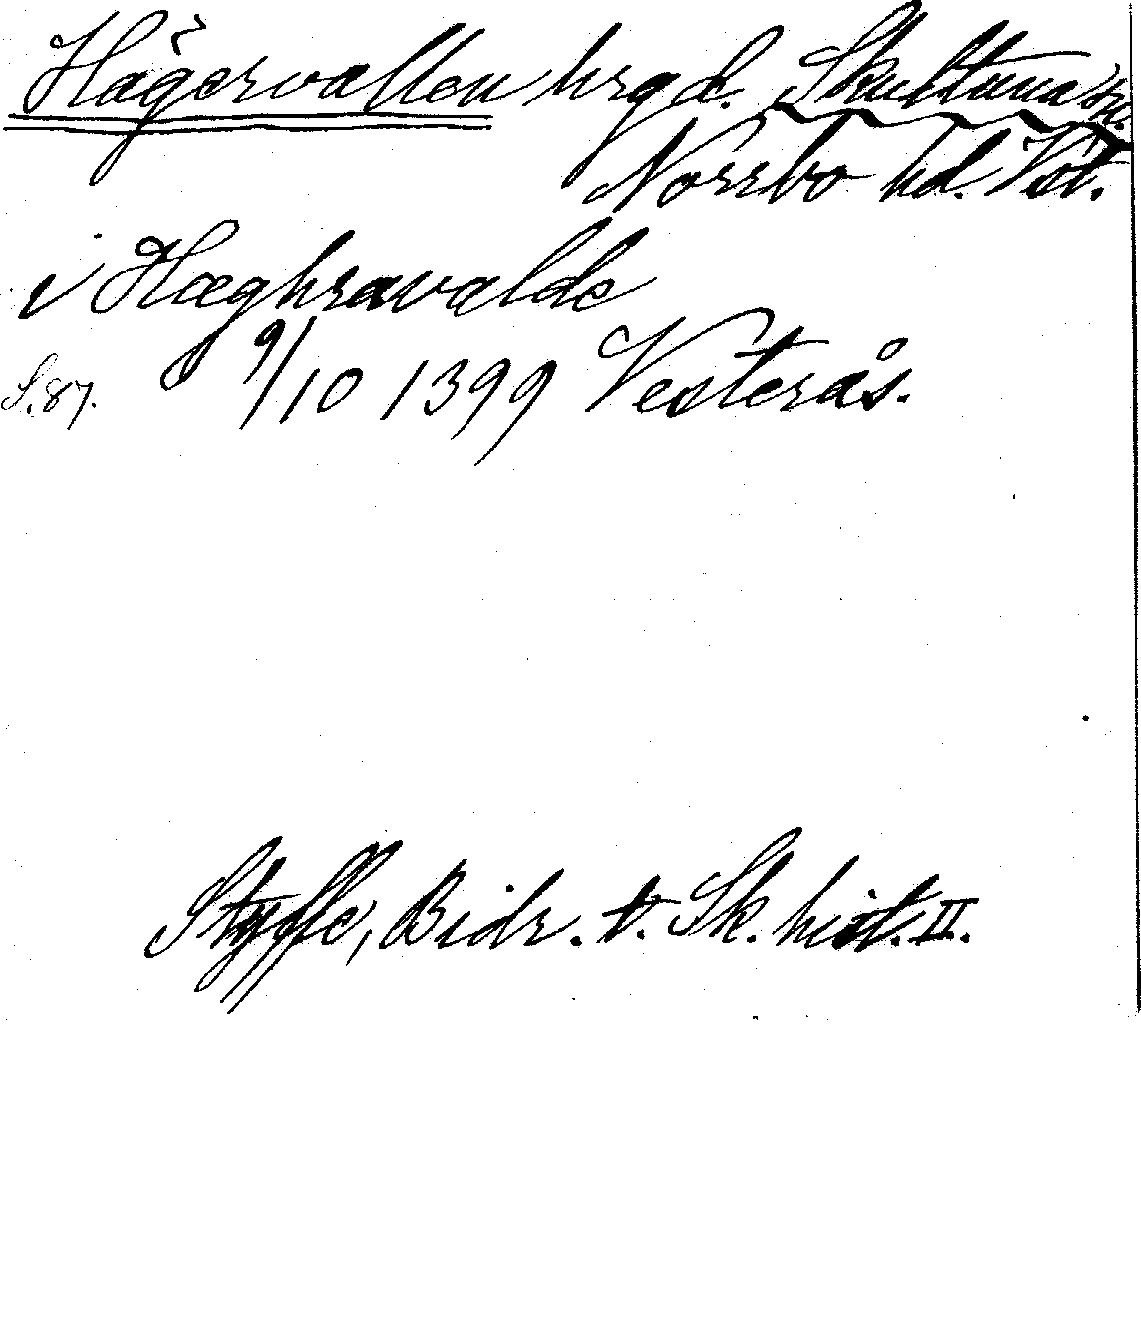 Hägervallen hrgd. Skultuna sn.
Norrbo hd. Vst.
i Hæghravalde
S. 87. 9/10 1399 Vesterås.
Styffe, Bidr. t. Sk. hist. II.